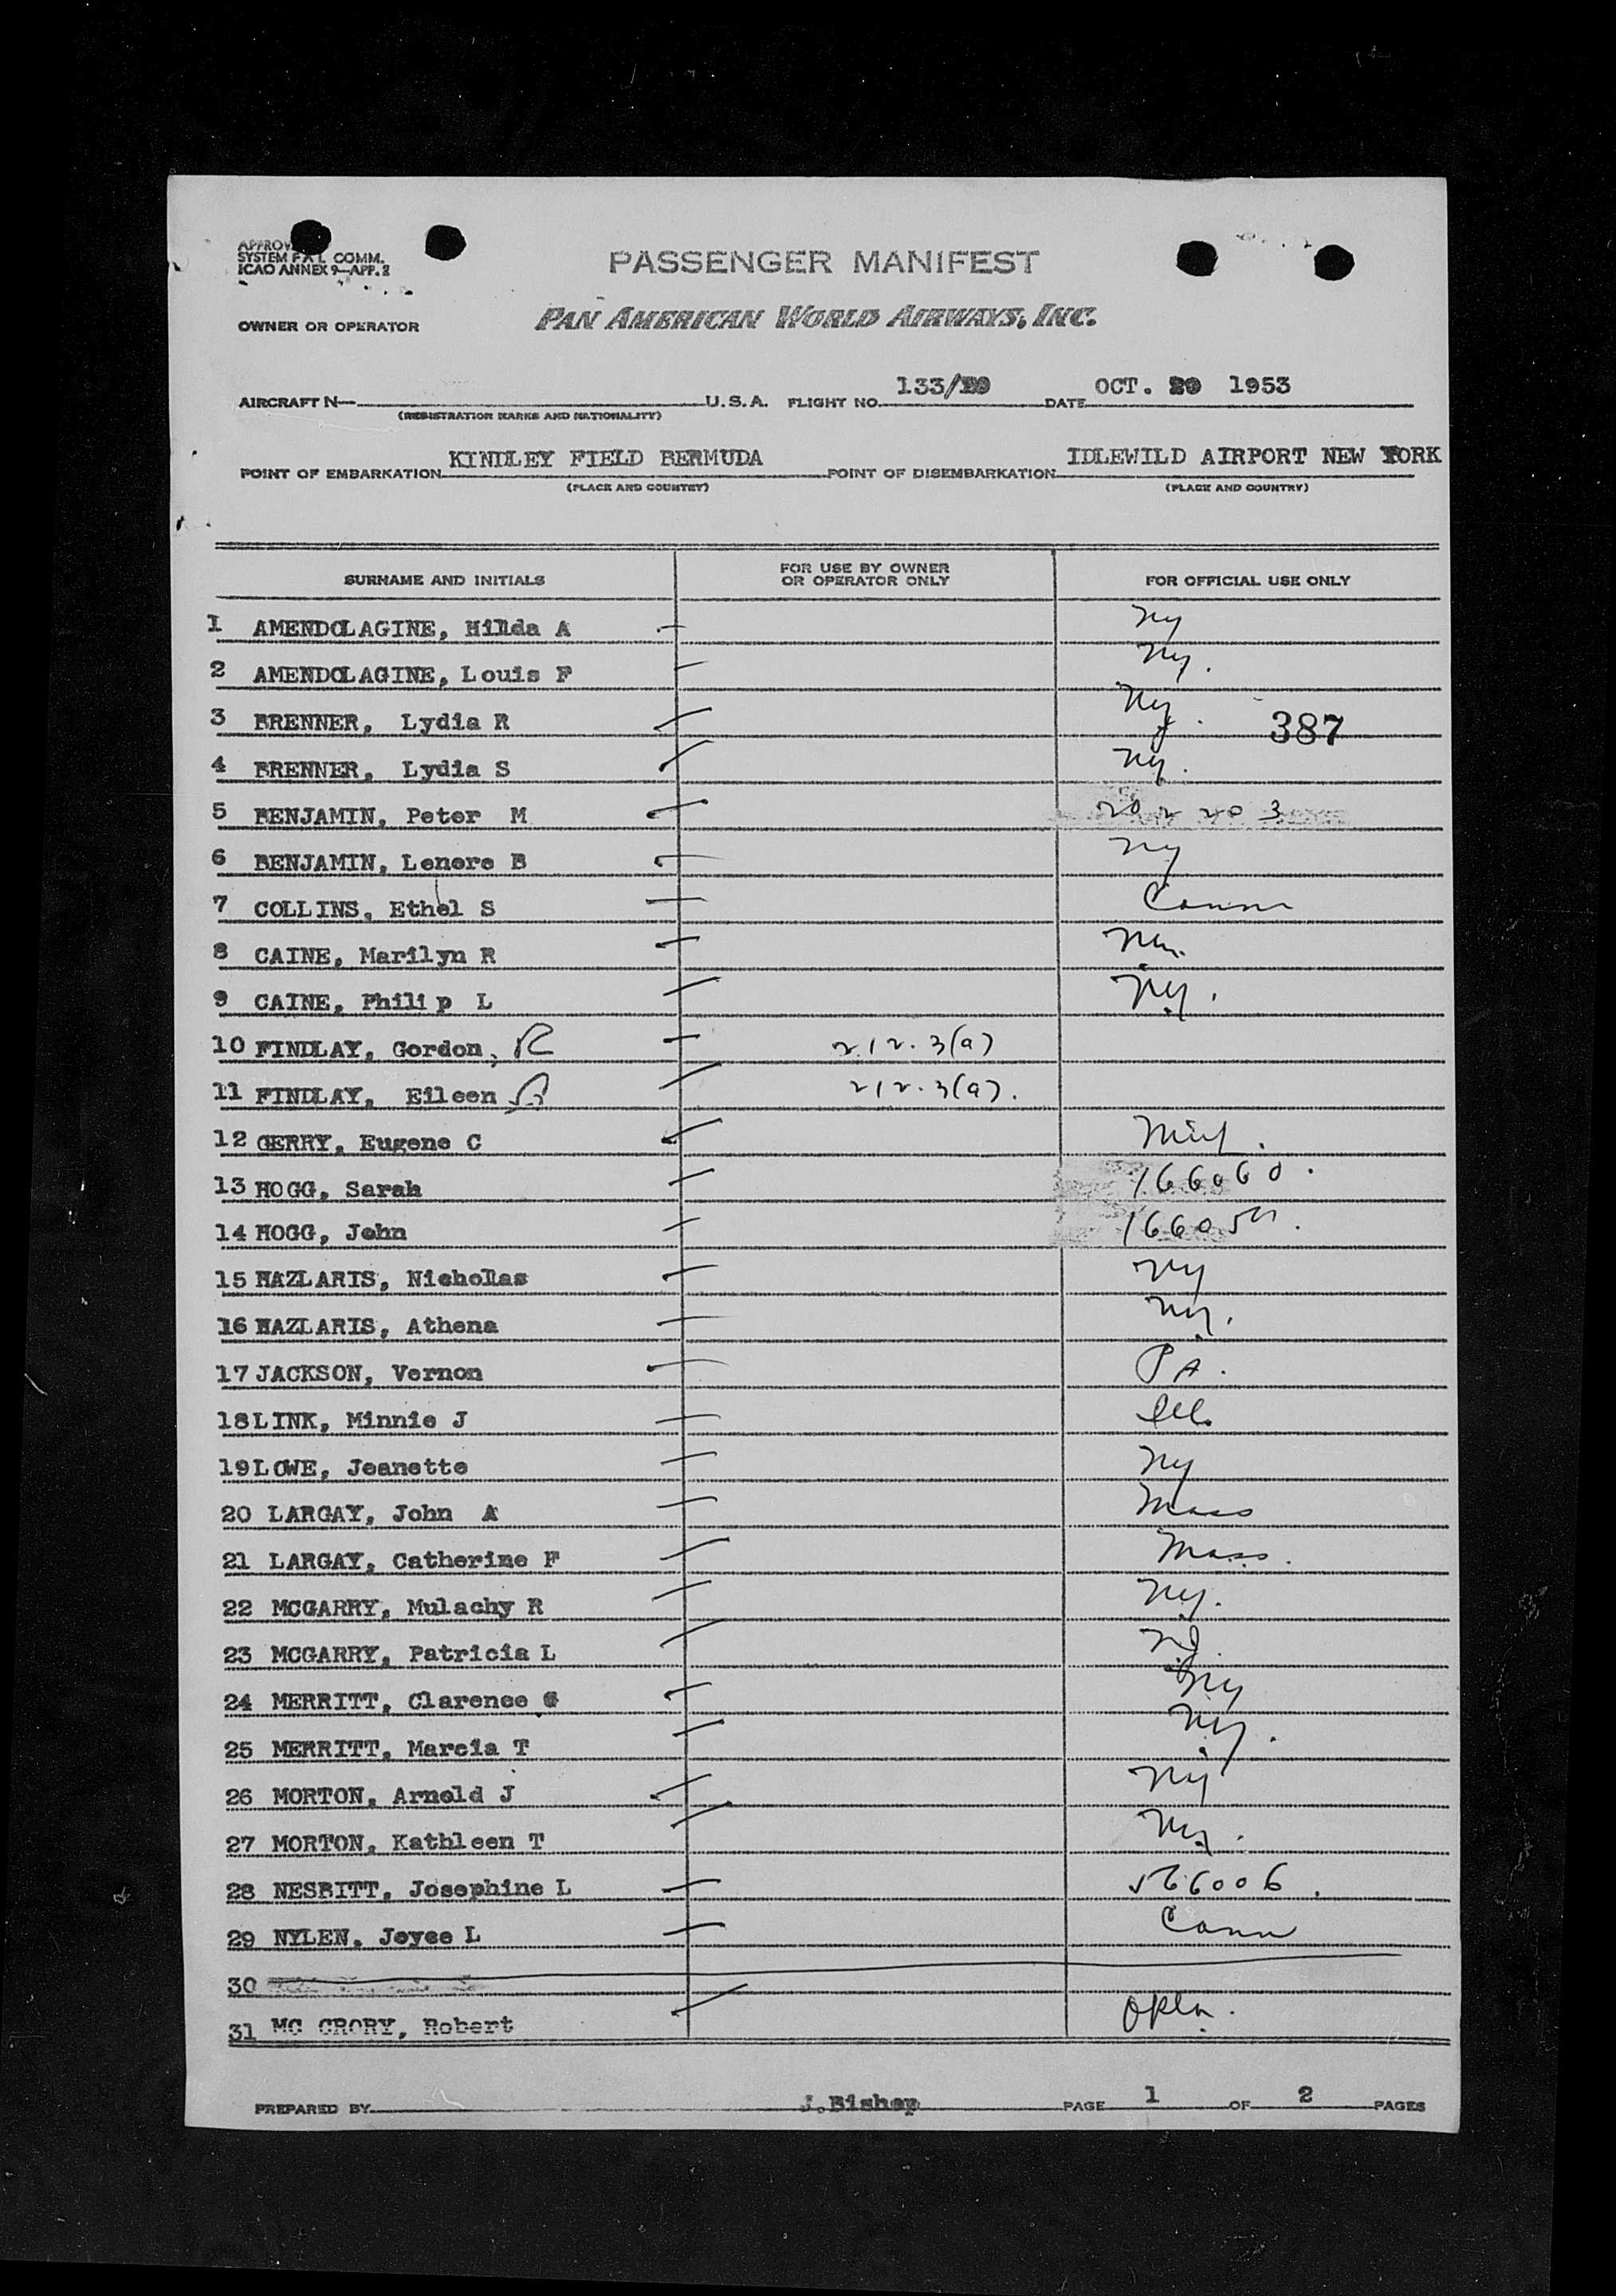 APPROV
SYSTEM FAL COMM.
ICAO ANNEX 9—APP. 2
PASSENGER MANIFEST
OWNER OR OPERATOR PAN AMERICAN WORLD AIRWAYS, INC.
AIRCRAFT N— U.S.A. FLIGHT NO. 133/ DATE OCT. 1953
(REGISTRATION MARKS AND NATIONALITY)
POINT OF EMBARKATION KINDLEY FIELD BERMUDA POINT OF DISEMBARKATION IDLEWILD AIRPORT NEW YORK
(PLACE AND COUNTRY) (PLACE AND COUNTRY)
SURNAME AND INITIALS FOR USE BY OWNER OR OPERATOR ONLY FOR OFFICIAL USE ONLY
1 AMENDOLAGINE, Hilda A Ny
2 AMENDOLAGINE, Louis F Ny.
3 BRENNER, Lydia R Ny. 387
4 BRENNER, Lydia S Ny.
5 BENJAMIN, Peter M
6 BENJAMIN, Lenore B Ny
7 COLLINS, Ethel S Conn
8 CAINE, Marilyn R Ny.
9 CAINE, Philip L Ny.
10 FINDLAY, Gordon, R 212.3(a)
11 FINDLAY, Eileen 212.3(a).
12 GERRY, Eugene C
13 HOGG, Sarah 166060.
14 HOGG, John
15 HAZLARIS, Nicholas Ny
16 HAZLARIS, Athena Ny.
17 JACKSON, Vernon PA.
18 LINK, Minnie J Ill.
19 LOWE, Jeanette Ny
20 LARGAY, John A Mass
21 LARGAY, Catherine F Mass.
22 MCGARRY, Mulachy R Ny.
23 MCGARRY, Patricia L Ny.
24 MERRITT, Clarence G Ny
25 MERRITT, Marcia T Ny.
26 MORTON, Arnold J Ny
27 MORTON, Kathleen T Ny.
28 NESBITT, Josephine L 566006.
29 NYLEN, Joyce L Conn
30
31 MC CRORY, Robert
PREPARED BY J.Bishop PAGE 1 OF 2 PAGES